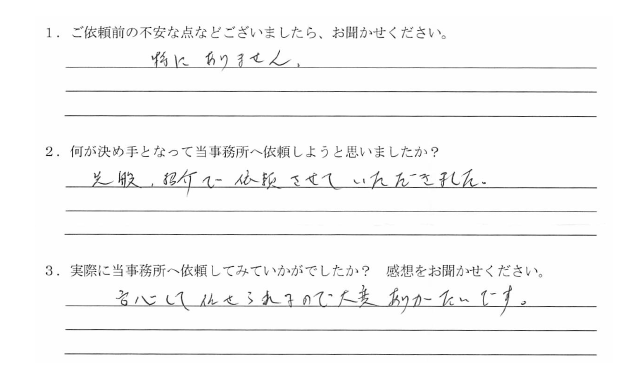 1．ご依頼前の不安な点などございましたら、お聞かせください。
特にありません。
2．何が決め手となって当事務所へ依頼しようと思いましたか？
先般、紹介で依頼させていただきました。
3．実際に当事務所へ依頼してみていかがでしたか？　感想をお聞かせください。
安心して任せられるので大変ありがたいです。